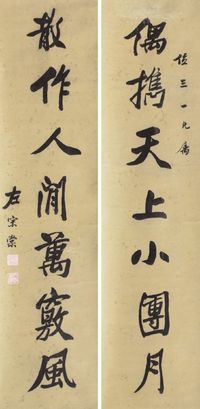 佐三一兄属
偶携天上小團月
散作人間萬竅風
左宗棠